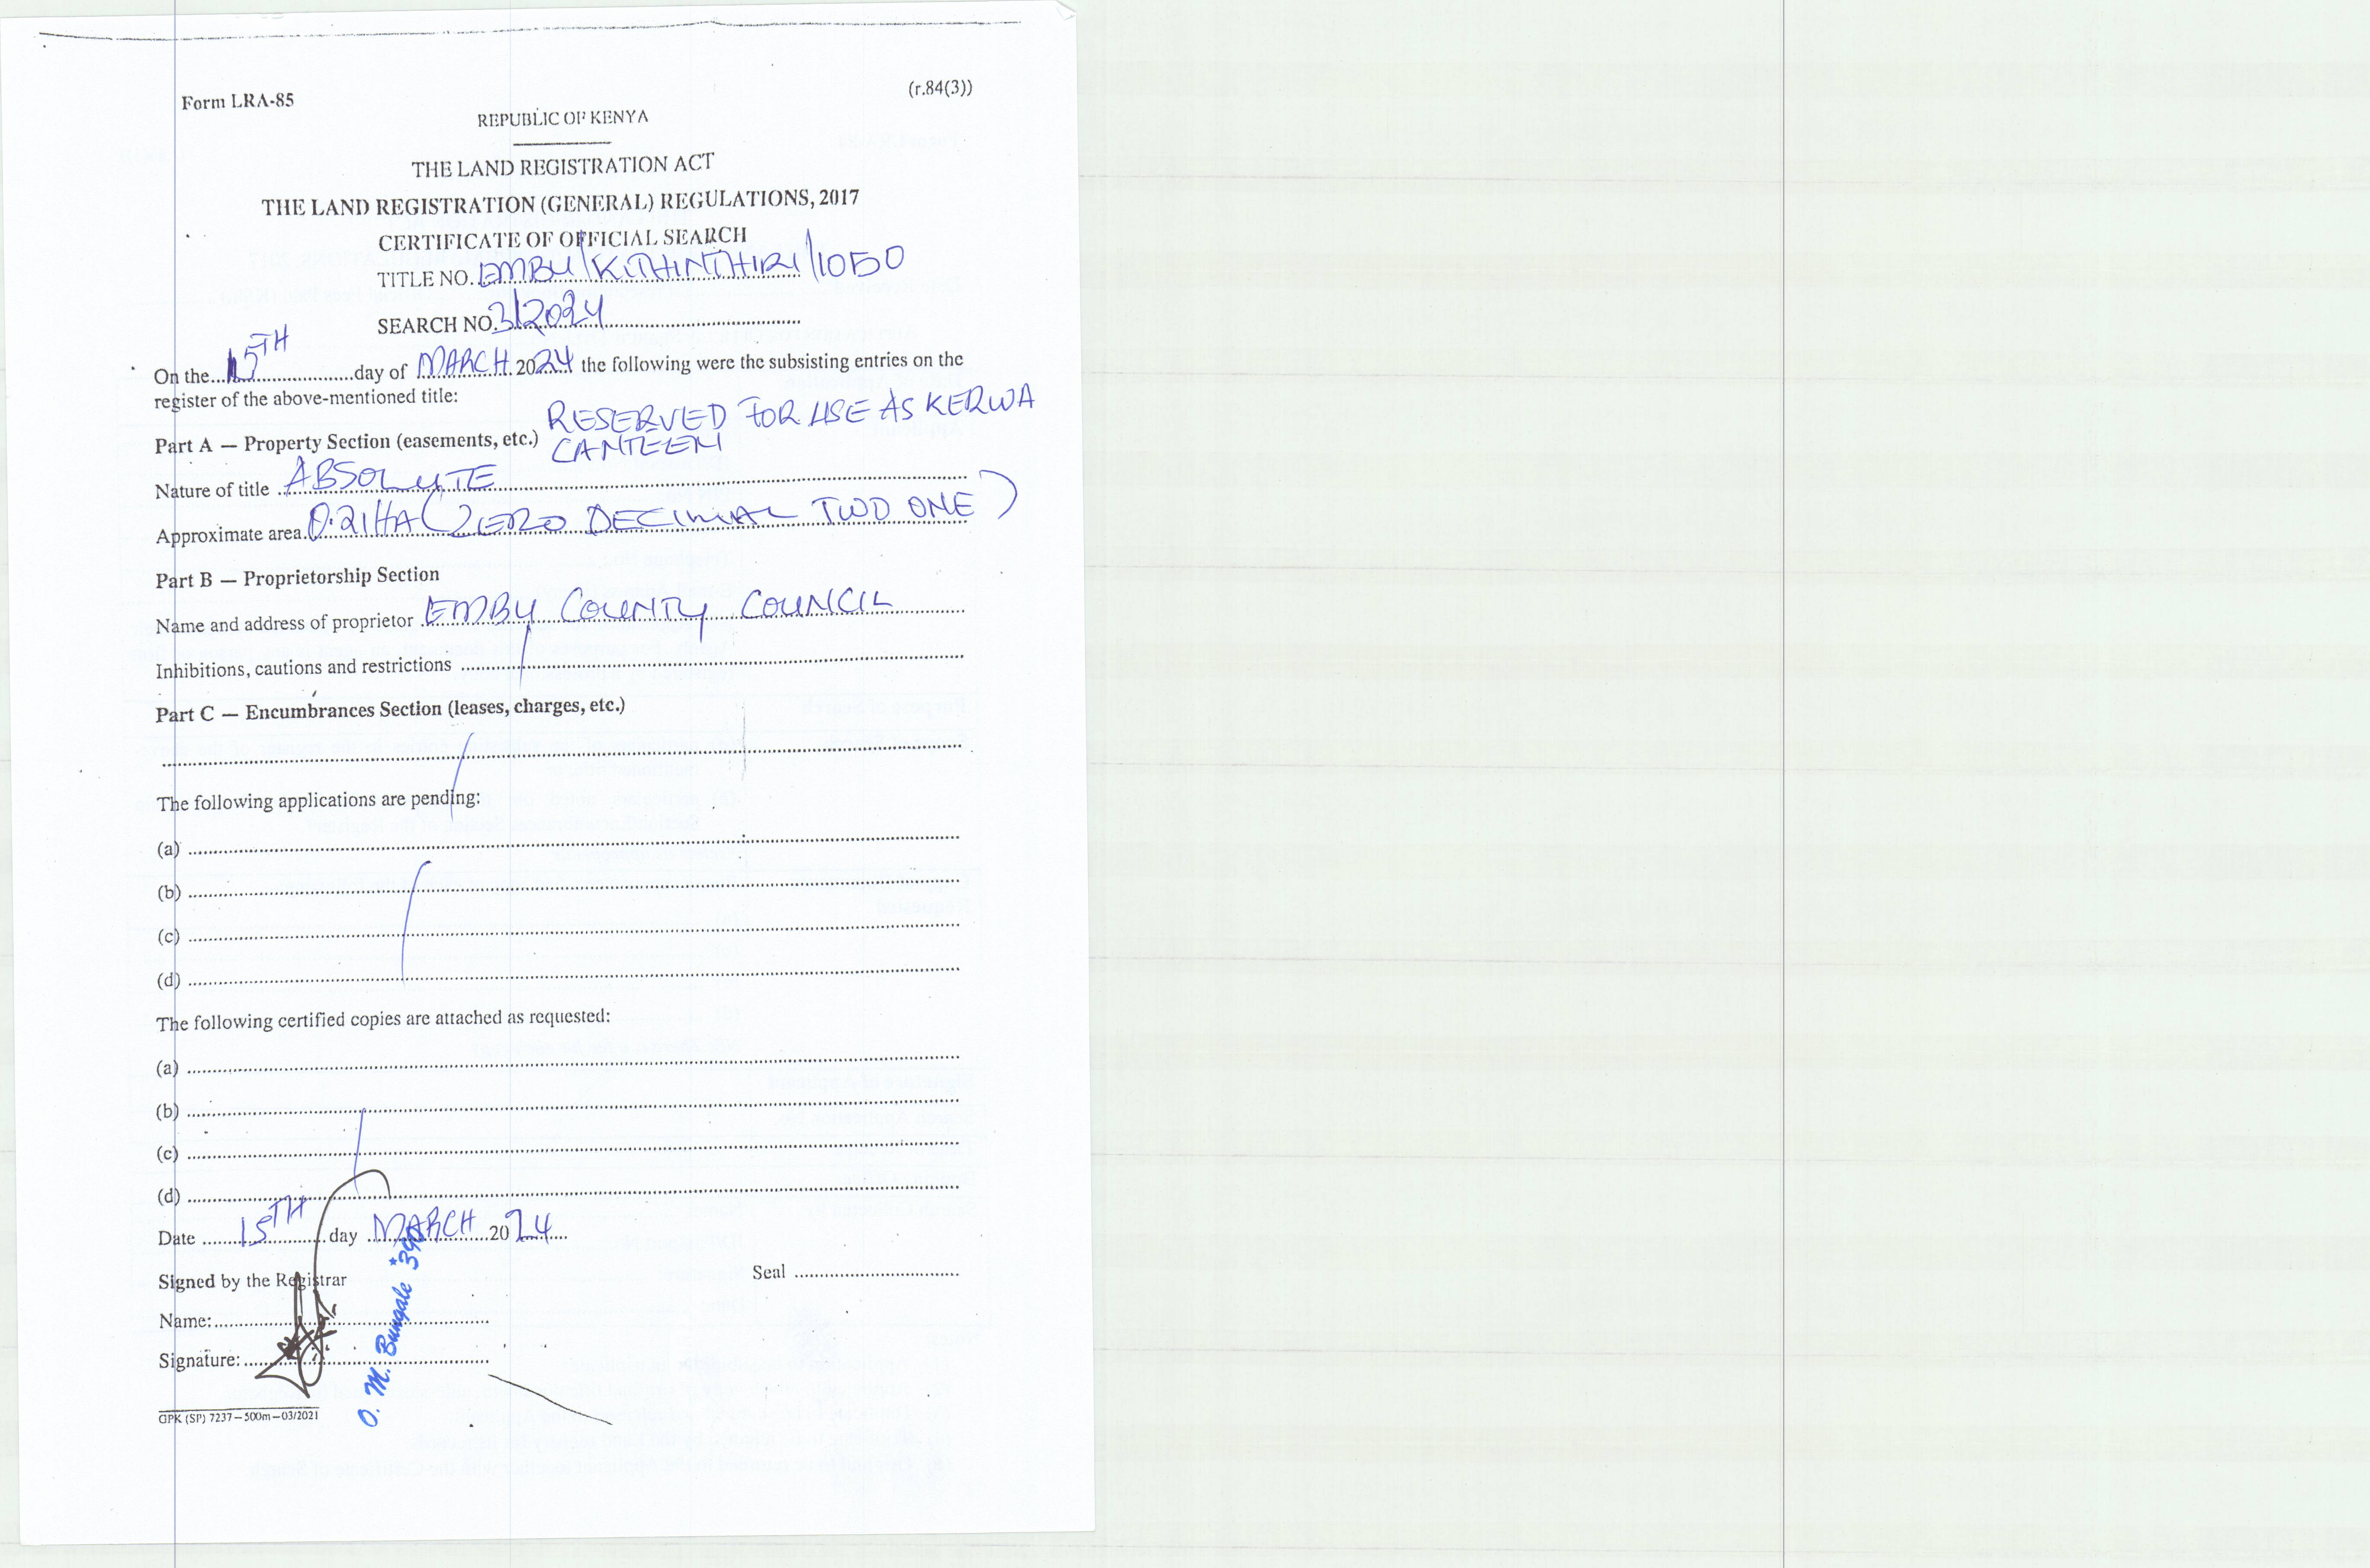 Form LRA-85
(r.84(3))
REPUBLIC OF KENYA
THE LAND REGISTRATION ACT
THE LAND REGISTRATION (GENERAL) REGULATIONS, 2017
CERTIFICATE OF OFFICIAL SEARCH
TITLE NO. EMBU/KITHINTHIRI/1050
SEARCH NO. 3/2024
On the 15TH day of MARCH 2024 the following were the subsisting entries on the
register of the above-mentioned title:
Part A — Property Section (easements, etc.) RESERVED FOR USE AS KERWA
CANTEEN
Nature of title ABSOLUTE
Approximate area 0.21HA (ZERO DECIMAL TWO ONE)
Part B — Proprietorship Section
Name and address of proprietor EMBU COUNTY COUNCIL
Inhibitions, cautions and restrictions
Part C — Encumbrances Section (leases, charges, etc.)
The following applications are pending:
(a)
(b)
(c)
(d)
The following certified copies are attached as requested:
(a)
(b)
(c)
(d)
Date 15TH day MARCH 2024
Signed by the Registrar
Seal
Name:
Signature:
O. M. Bungale *390
GPK (SP) 7237—500m—03/2021